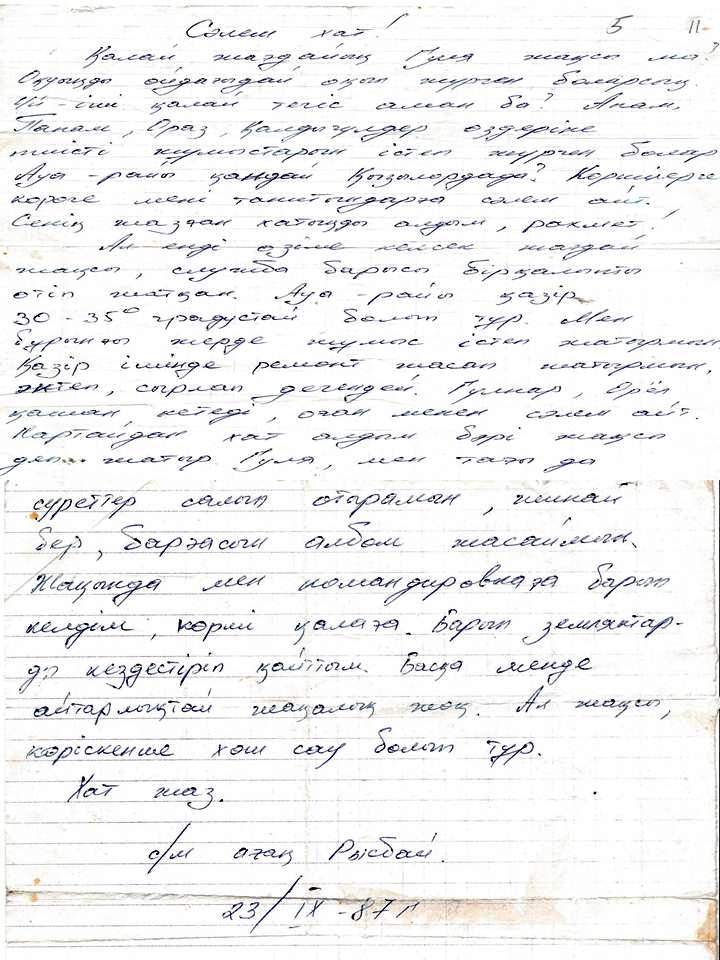 Сәлем хат! 5 11
Қалай жағдайың Гуля жақсы ма?
Оқуыңды ойдағыдай оқып жүрген боларсың.
Үй-іші қалай тегіс аман ба? Апам,
Папам, Ораз, Қалдыгүлдер өздеріне
тиісті жұмыстарын істеп жүрген болар
Ауа-райы қандай Қызылордада? Көршілерге
көрге мені танитындарға сәлем айт.
Сенің жазған хатыңды алдым, рахмет!
Ал енді өзіме келсек жағдай
жақсы, служба барысы бірқалыпты
өтіп жатқан. Ауа-райы қазір
30-35° градустай болып тұр. Мен
бұрынғы жерде жұмыс істеп жатырмын.
Қазір ішінде ремонт жасап жатырмын,
әктеп, сырлап дегендей. Гулнар,
қашан кетеді, оған менен сәлем айт.
хат алдым бәрі жақсы
деп жатыр. Гуля, мен тағы да
суреттер салып отырамын, жинай
бер, барғасын альбом жасаймын.
Жақында мен командировкаға барып
келдім, көрші қалаға. Барып земляктар-
ды кездестіріп қайттым. Басқа менде
айтарлықтай жаңалық жоқ. Ал жақсы,
көріскенше хош сау болып тұр.
Хат жаз.
с/м ағаң Рысбай.
23/IX-87 г